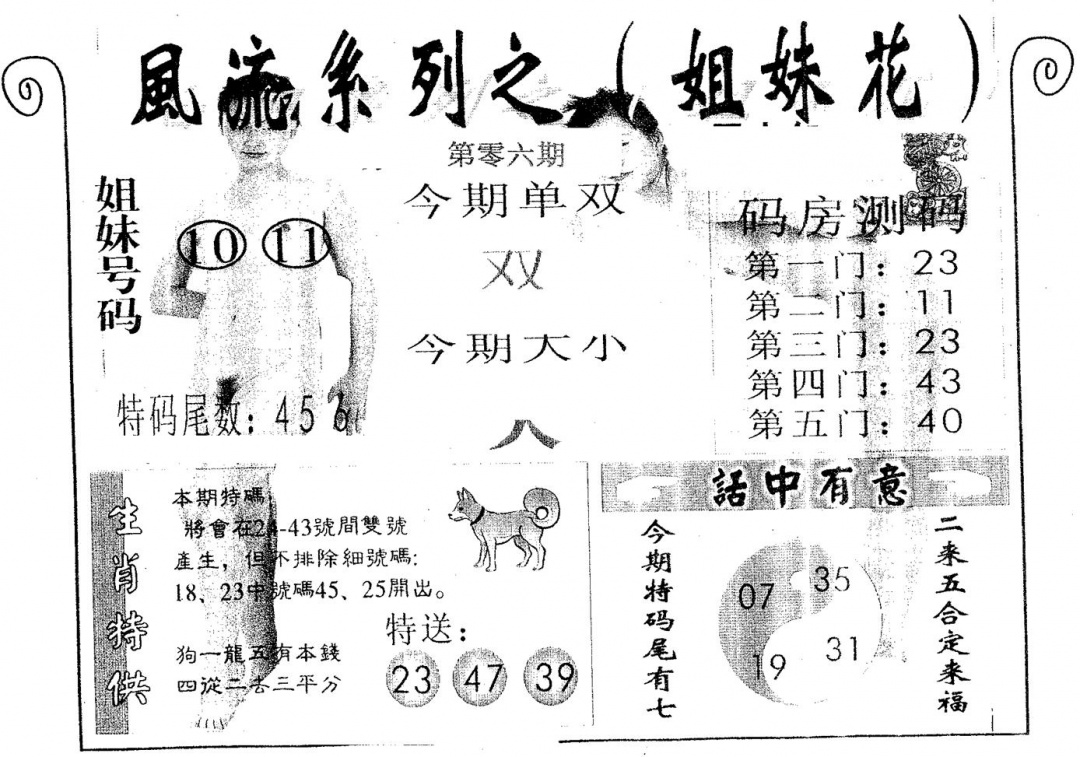 風流系列之（姐妹花）
第零六期
姐妹号码
10 11
今期单双
双
今期大小
特码尾数：456
码房测码
第一门：23
第二门：11
第三门：23
第四门：43
第五门：40
生肖特供
本期特碼:
將會在24-43號間雙號
產生，但不排除細號碼:
18、23中號碼45、25開出。
狗一龍五有本錢
四從二去三平分
特送：
23 47 39
話中有意
今期特码尾有七
07 35
19 31
二来五合定来福